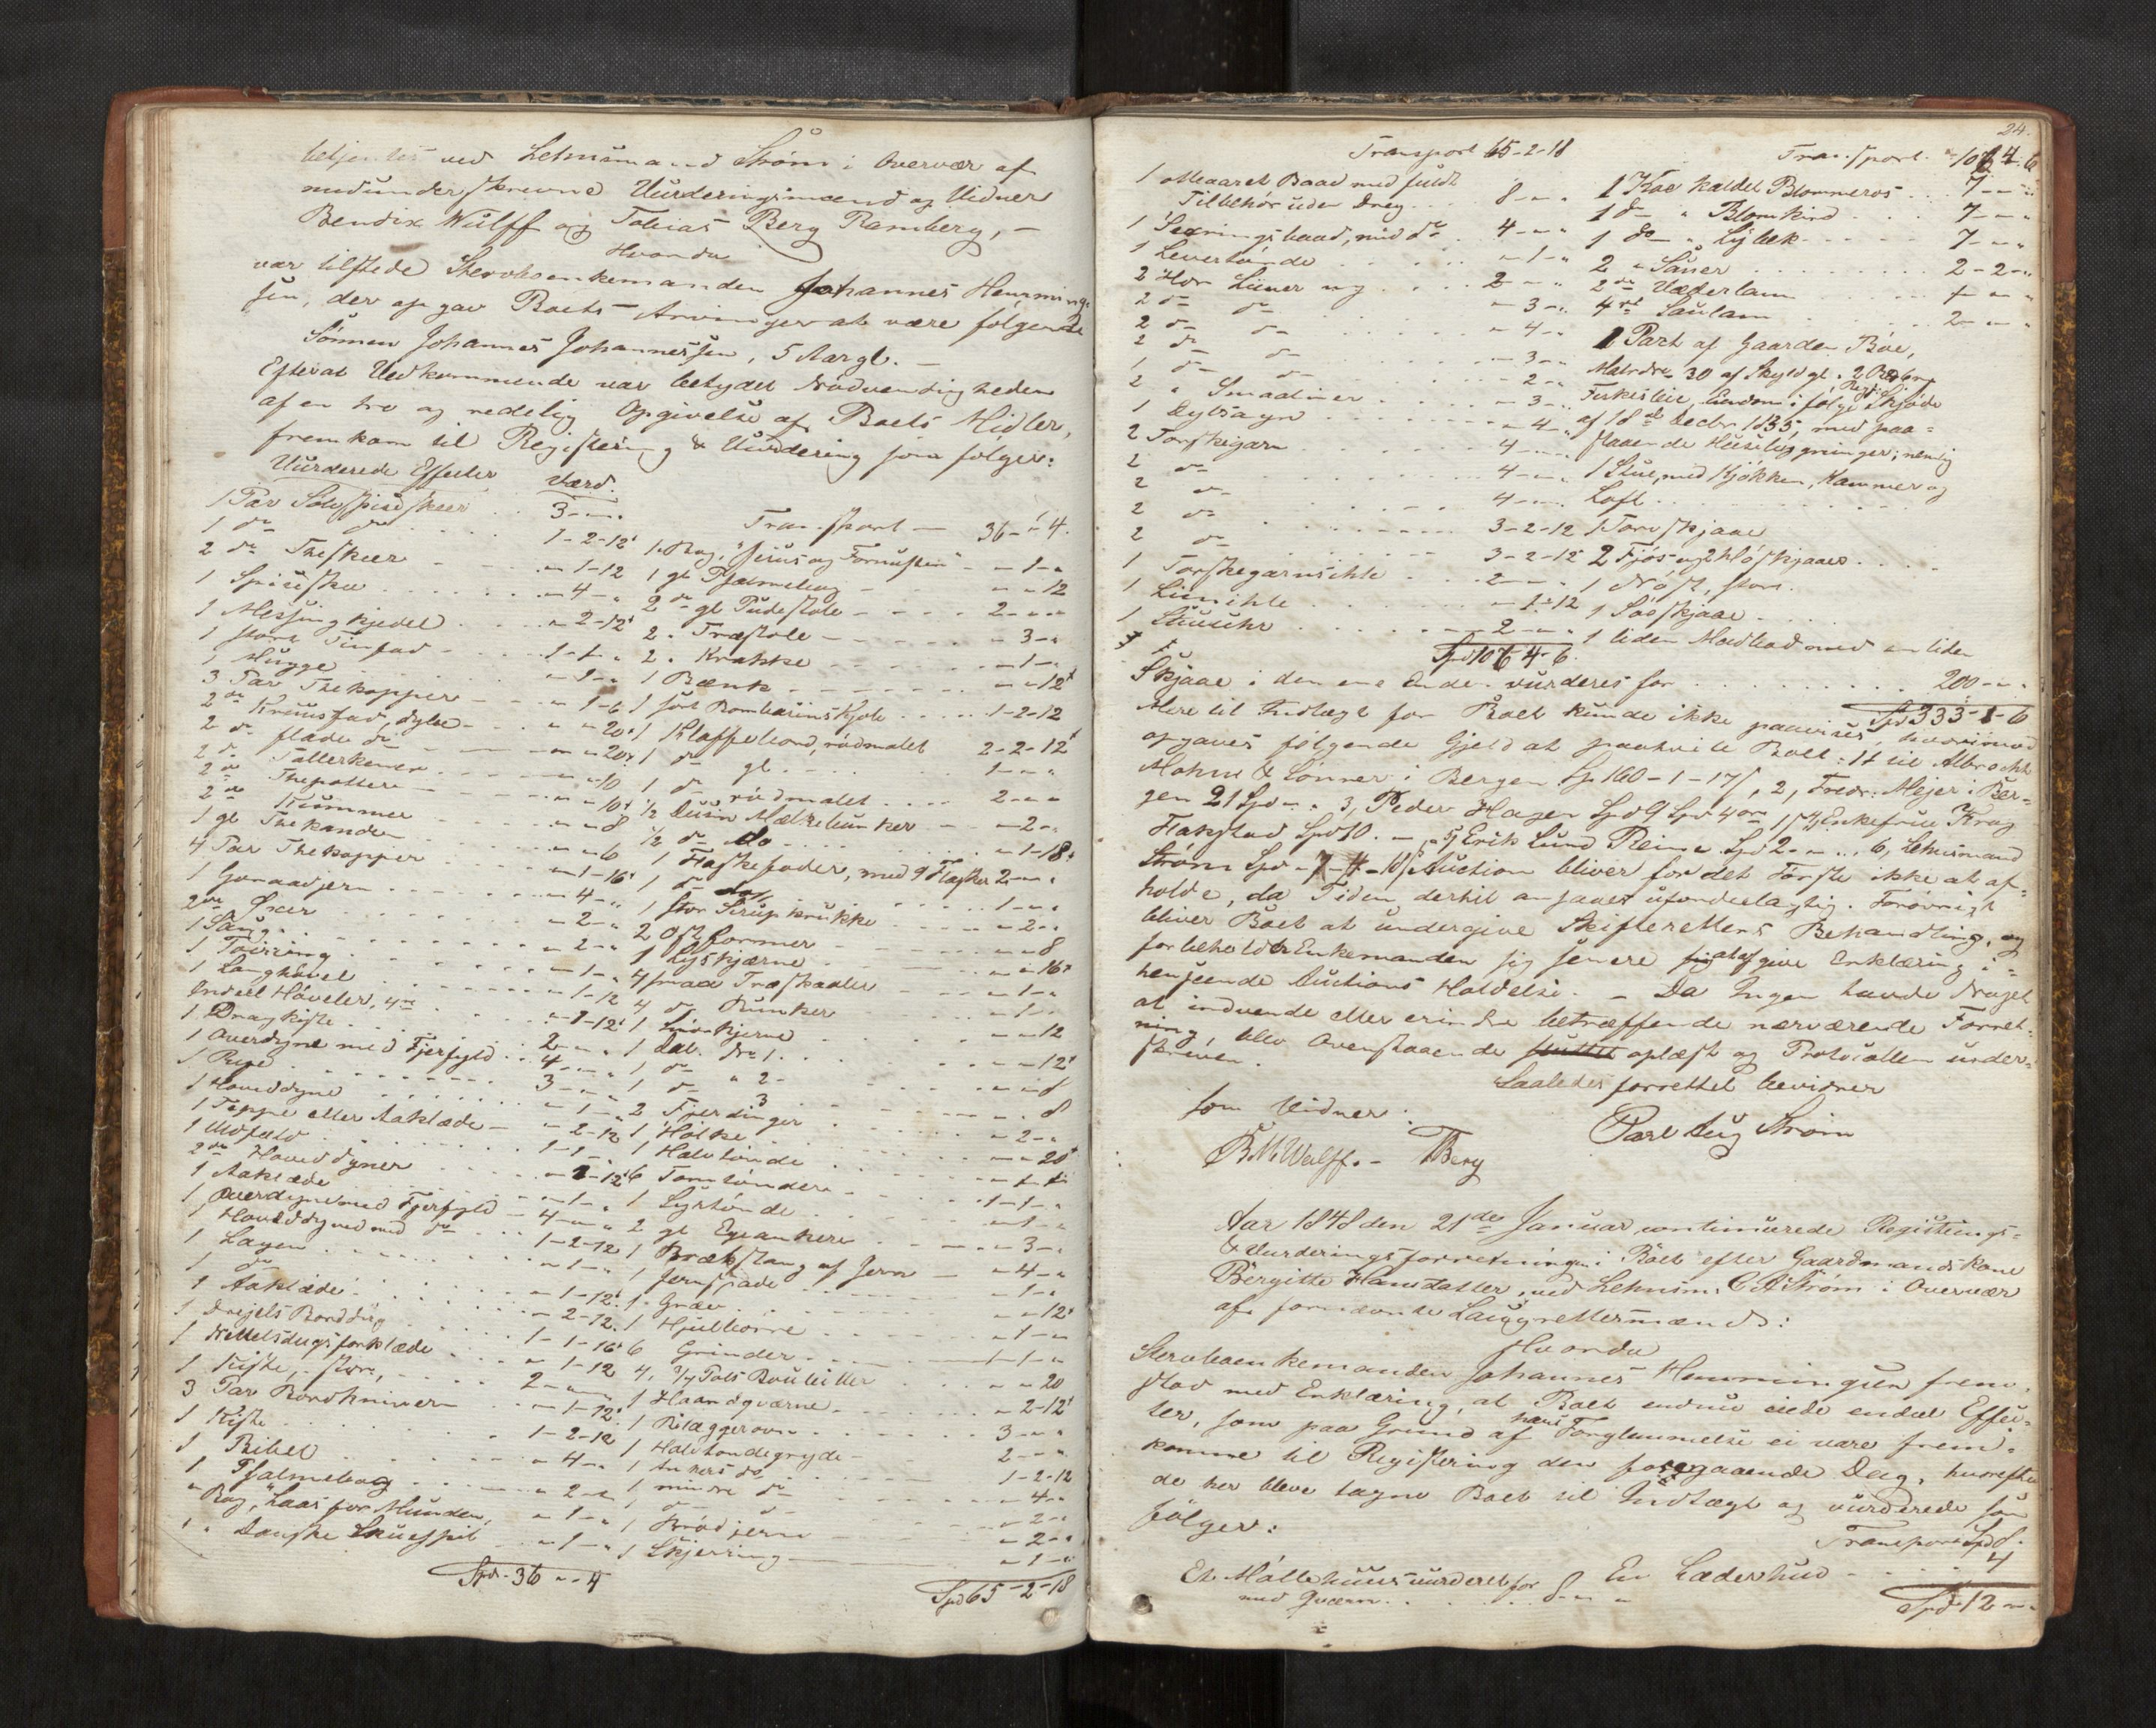 betjentes ved Lehnsmand Strøm i Overvær af
nedunderskrevne Vurderingsmænd og Vidner
Bendix Wulff og Tobias Berg Ramberg, —
Hvorda
var tilstede Stervboenkemanden Johannes Henning-
sen, der opgav Boets Arvinger at være følgende
Sønnen Johannes Johannessen, 5 Aar gl. —
Efterat Vedkommende var betydet Nødvendigheden
af en tro og redelig Opgivelse af Boets Midler,
fremkom til Registering & Vurdering som følger:
Vurderede Effecter Værd.
1 Par Sølvspiseskeer . . 3-„-„
1 do do . . . . 1-2-12
2 do Theskeer - - „-1-12
1 Spiseske . . . . „-4-„
1 Messingkjedel . . . „-2-12
1 stort Tinfad - . . 1-1-„
1 Mugge . . . „-1-„
3 Par Thekopper - - „-1-6
2 do Kruusfad, dybe - - „-„-20
2 do flade do - - „-„-20
2 do Tallerkener . . . „-„-10
2 do Thepotter - - „-„-10
2 do Kummer - - „-„-8
1 gl Thekande - - „-„-6
4 Par Thekopper - - „-1-16
1 Goraadjern . . . . „-4-„
2 do Øxer . . . . „-2-„
1 Saug . . . . „-2-„
1 Tvirring . . . . „-1-„
1 Langhøvel . . . . „-1-12
Endeel Høveler, 4re . . „-1-12
1 Dragkiste . . . . 2-„-„
1 Overdyne med Fjerfyld . . 4-„-„
1 Rye . . . . 3-„-„
1 Hoveddyne . . . . „-1-„
1 Teppe eller Aaklæde - - „-2-12
1 Uldfæld . . . . 1-1-„
2 do Hoveddyner . . . „-1-12
1 Aaklæde . . . „-1-„
1 Overdyne med Fjerfyld - 4-„-„
1 Hoveddyne med do . . . 1-2-12
1 Lagen . . . . „-1-„
1 do . . . . „-1-12
1 Aaklæde . . . . „-2-12
1 Drejels Borddug . . . 1-1-16
1 Nettelsdugsforklæde . . . „-1-12
1 Kiste, stor, . . . 2-„-„
3 Par Bordkniver - - „-1-12
1 Kiste . . . . 1-2-12
1 Bibel . . . . „-4-„
1 Psalmebog . . . . „-2-„
„ Bog, "Laas for Munden, „-1-„
1 „ Danske Skuespil . . „-1-„
Spd. 36 „-4
Transport — 36-„-4.
1 Bog, "Jesus og Fornuften" - „-1-„
1 gl Psalmebog - - „-„-12
2 do gl Pudestole - - - 2-„-„
2 „ Træstole - - - „-3-„
2 „ Krakke - - - „-1-„
1 Bænk - - - „-„-12
1 sort Bombasins Kjole . . . 1-2-12
1 Klaffebord, rødmalet 2-2-12
1 do gl. . . . 1-„-„
1 do rødmalet . . . 2-„-„
½ Dusin Mælkebunker - - „-2-„
½ do do . . . . „-1-18
1 Flaskefoder, med 9 Flasker 2-„-„
1 do . . . . 1-„-„
1 stor Sirupkrukke . . . „-2-„
2 Ostformer - - - „-„-8
1 Lyskjærne . . . „-„-16
4 smaa Træskaaler - - „-1-„
4 do Bunker . . . „-1-„
1 Smørkjerne . . . „-„-12
1 Bal. No 1. . . . „-„-12
1 do „ 2 - . . . „-„-8
1 do 3 . . . „-„-8
2 Fjerdinger . . . „-2-„
1 Holke . . . „-„-20
1 Halvtønde . . . „-1-„
6 Tomtønder . . . 1-1-„
1 Lystønde . . . „-1-„
2 gl Egeankere . . . „-3-„
1 Brækstang af Jern - „-4-„
1 Jernspade . . . „-1-„
1 Grev . . . „-„-12
1 Hjulbørre . . . „-1-„
6 Grinder . . . 1-1-„
4, ¾ Pots Bouteiller . . . „-„-20
1 Haandqværne . . . „-2-12
1 Bilæggerovn . . . 3-„-„
1 Halvtøndegryde - - 2-„-„
1 Ankers do . . . 1-2-12
1 mindre do . . . „-4-„
1 do . . . „-2-„
1 Brødjern . . . „-2-„
1 Skjerring . . . „-1-„
Spd 65-2-18
24.
Transport 65-2-18
1 Aaret Baad med fuldt
Tilbehør uden Dræg . . . 8-„-„
1 Sexringsbaad, med do . . 4-„-„
1 Levertønde . . . . „-1-„
2 Hdr Liiner ny . . . . 2-„-„
2 do do . . . . „-3-„
2 do do . . . . „-4-„
2 do do . . . . „-3-„
1 do do . . . . „-2-„
2 „ Smaaliner . . . . „-3-„
1 Dybsagn . . . . „-4-„
2 Torskegarn . . . . 4-„-„
2 do . . . . 4-„-„
2 do . . . . 4-„-„
2 do . . . . 3-2-12
2 do . . . . 3-2-12
1 Torskegarnsihle . . . 2-„-„
1 Liinihle . . . . „-1-12
1 Stuuihr . . . . „-2-„
Spd 106-4-6.
Transport. „ 106-4-6
1 Koe kaldet Blommeros . . . 7-„-„
1 do „ Blomkind . . . 7-„-„
1 do „ Lybek . . . 7-„-„
2 „ Sauer . . . . 2-2-„
2 do Væderlam . . . 1-„-„
4 re Saulam . . . 2-„-„
1 Part af Gaarden Böe,
Matrdr 30 af Skyld gl. 2 Øre 6
Fiskesleie, Eiendom ifølge Skjøde
af 18de Decbr 1835, med paa-
staaende Huusebygninger; nemlig
1 Stue, med Kjøkken, Kammer og
Loft . . . .
1 Torvskjaae
2 Fjøs og 2 Høskjaaer . . . .
1 Nöst, stort.
1 Söeskjaae . . . .
1 liden Madbod med en liden
Skjaae i den ene Ende. vurderes for . . . . 200-„-„
Spd 333-1-6
Mere til Indtægt for Boet kunde ikke paavises, hvorimod
opgaves følgende Gjeld at paahvile Boet: 1t til Albrecht
Mohns & Sønner i Bergen Sp 160-1-17 ſ, 2, Fredr: Mejer i Ber-
gen 21 Spd „. 3, Peder Hagen Spd 9 4 Enkefrue Krag
Flakstad Spd 10. — 5, Erik Lund Reine Spd 2-„-„. 6, Lehnsmand
Strøm Spd „-7-4-10 ſ Auction bliver for det Første ikke at af-
holde, da Tiden dertil ansaaes ufordeelagtig. Forøvrigt
bliver Boet at undergive Skifterettens Behandling, og
forbeholdt Enkemanden sig senere at afgive Erklæring i
henseende Auctions Holdelse. — Da Ingen havde Noget
at indvende eller erindre betræffende nærværende Forret-
ning, blev Ovenstaaende sluttet oplæst og Protocollen under-
skreven.
Saaledes forrettet bevidner
Carl Aug Strøm
som Vidner:
B. M. Wulff. — TBerg
Aar 1848 den 21de Januar continuerede Registerings-
& Vurderingsforretningen i Boet efter Gaardmands Kone
Bergitte Hansdatter, ved Lehnsm: C A Strøm i Overvær
af fornævnte Laugrettesmænd:
Hvorda
Stervboenkemanden Johannes Henningsen frem-
stod med Erklæring, at Boet endnu eiede endeel Effec-
ter, som paa Grund af hans Forglemmelse ei vare frem-
komne til Registering den foregaaende Dag, hvorefter
de her bleve tagne Boet til Indtægt og vurderede som
følger:
Et Møllehuus vurderet for
med Qværn . . . . 8-„-„
Transport Spd 8.
En Læderhud - - - 4
Spd. 12 „-„